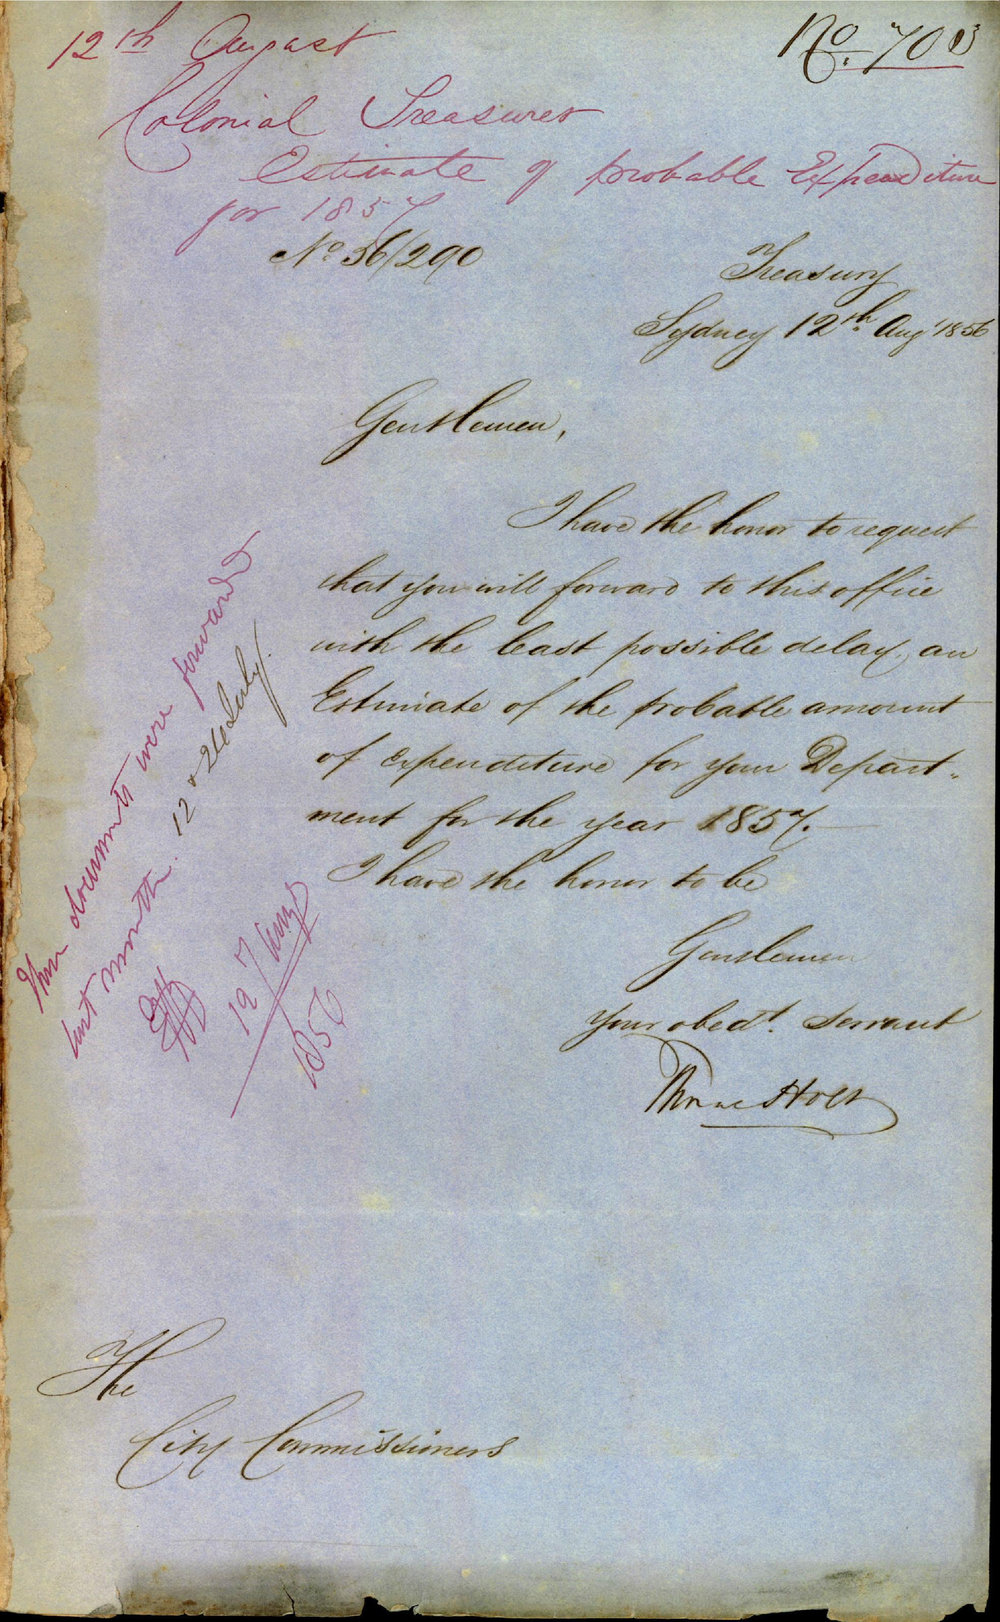 12th August
No. 700
Colonial Treasurer
Estimate of probable Expenditure
for 1857
No 56/290
Treasury
Sydney 12th Aug 1856
Gentlemen,
I have the honor to request
that you will forward to this office
with the least possible delay, an
Estimate of the probable amount
of expenditure for your Depart-
ment for the year 1857.
I have the honor to be
Gentlemen
Your obedt. Servant
Thomas Holt
The
City Commissioners
documents were forward
last month. 12 & 26 July.
1856